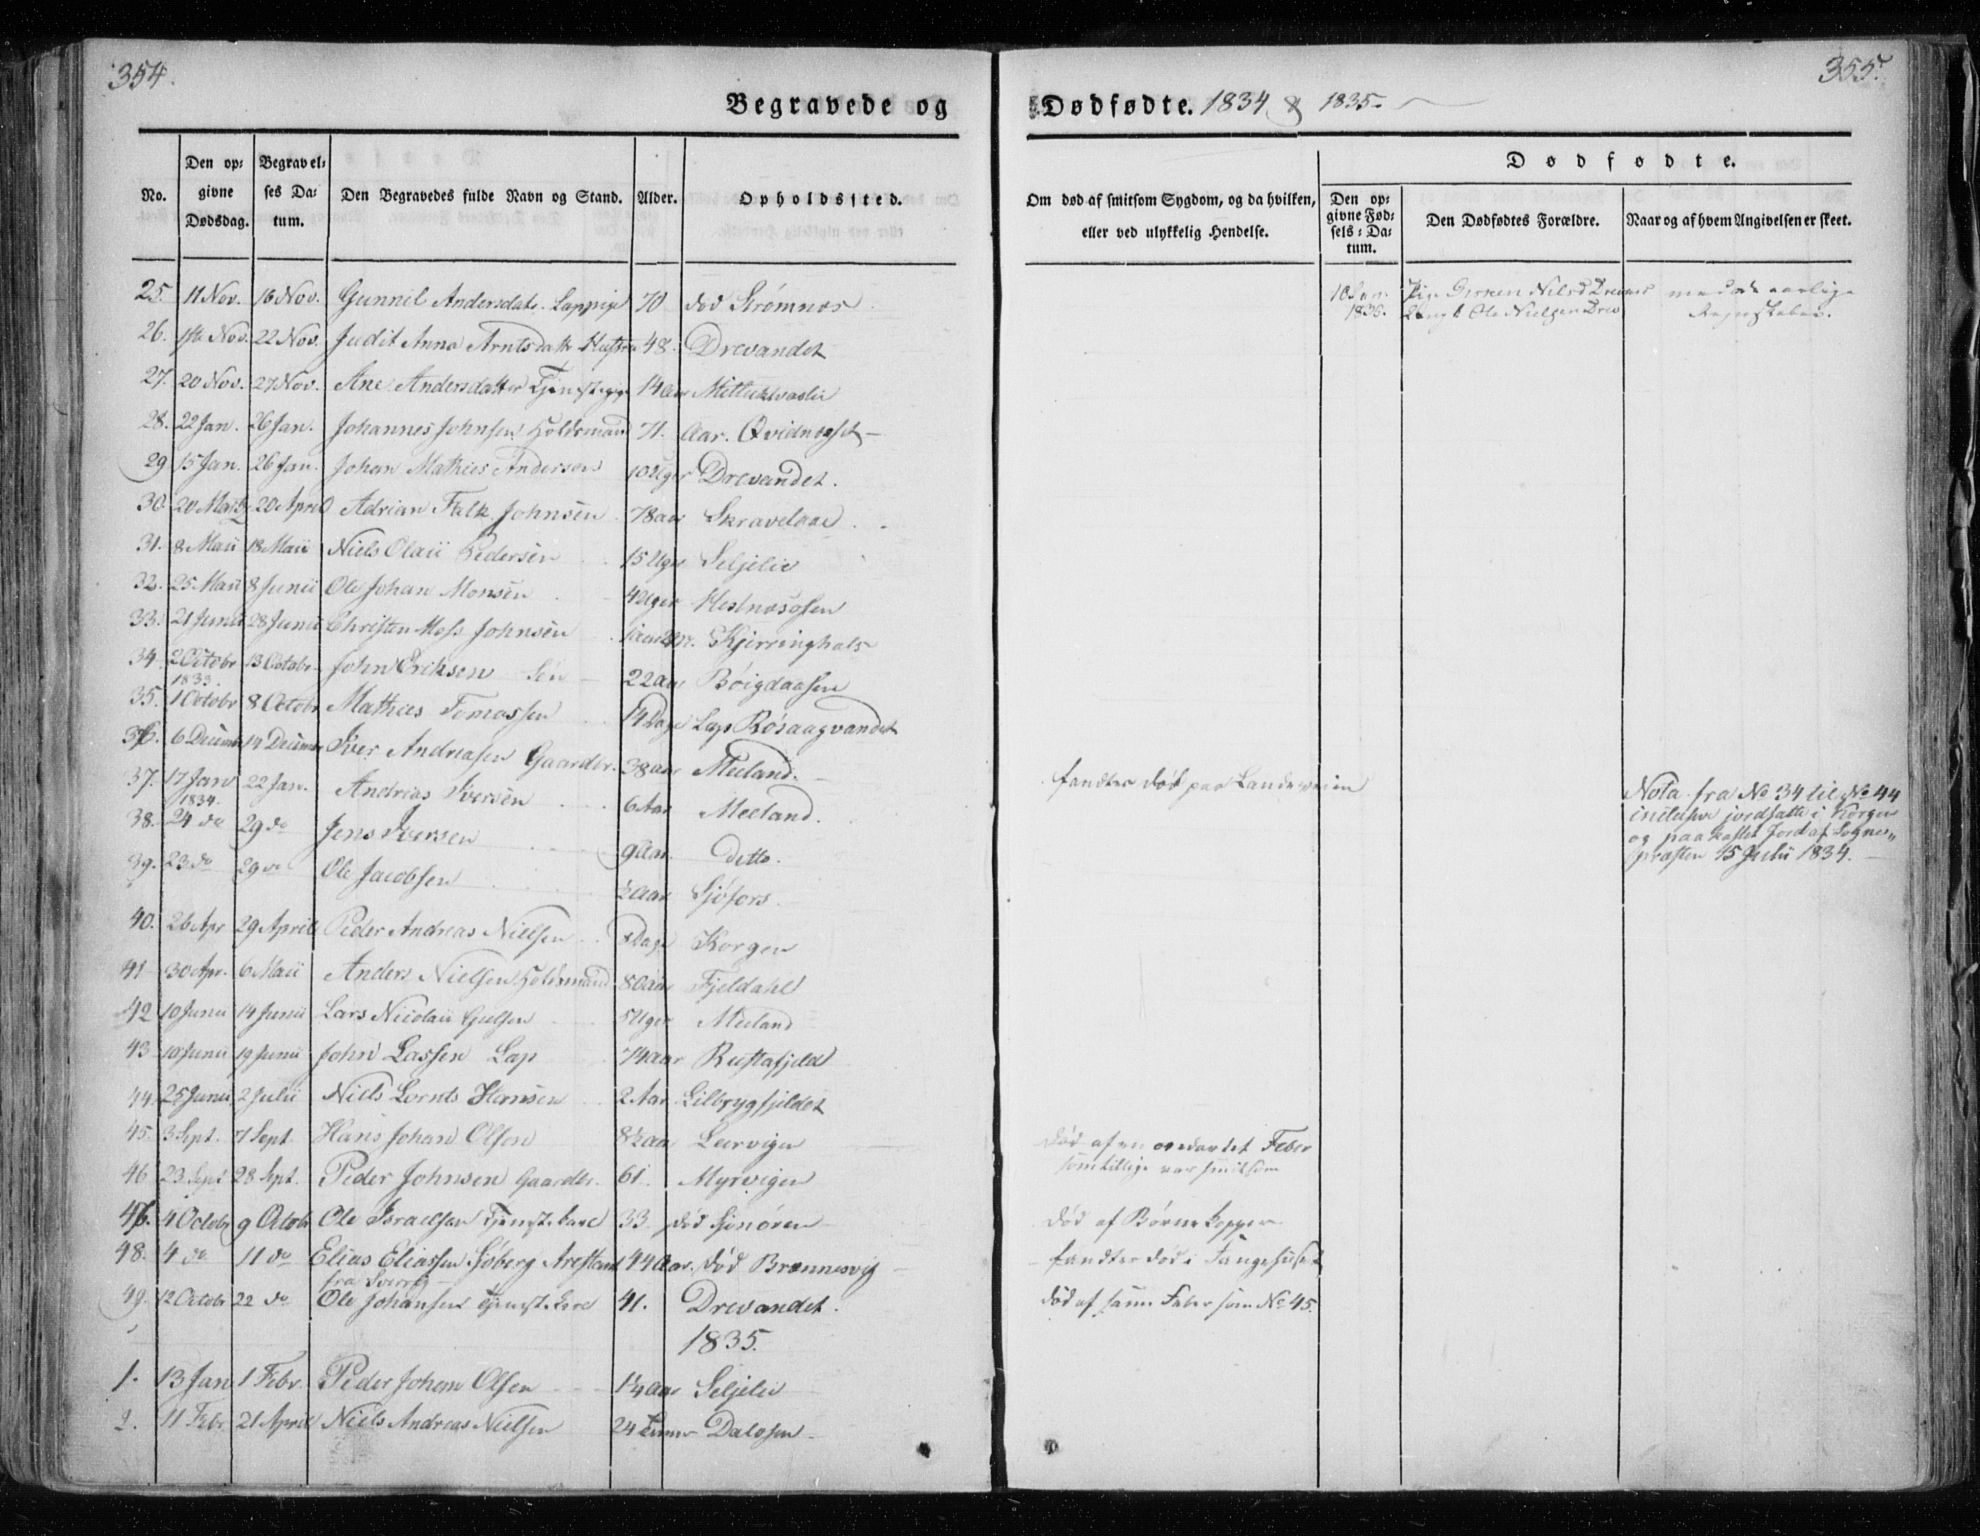 354.
Begravede og
No. Den opgivne Dødsdag. Begravelses Datum. Den Begravedes fulde Navn og Stand. Alder. Opholdssted.
25. 11 Nov. 16 Nov. Gunnil Andersdatr. 70 død Strømnæs
26. Nov. 22 Nov. Judit Anna Arntsdattr 48. Drevandet
27. 20 Nov. 27 Nov. Ane Andersdatter 14 Aar
28. 22 Jan. 26 Jan. Johannes Johnsen Holdsmand 71. Aar. Qvidnæset
29 15 Jan. 26 Jan. Johan Mathies Andersen 10 Uger Drevandet.
30. 20 Marts 20 April Adrian Falk Johnsen 78 aar Skravelaae
31. 8 Maii 18 Maii Niels Olaii Pedersen 15 Uger Seljelie
32. 25 Maii 8 Junii Ole Johan Monsen 4 Uger Hestnæsosen
33. 21 Junii 28 Junii Christen Moss Johnsen Kjerringhals
34. 2 Octobr 13 Octobr John Eriksen 22 aar Bøigdaasen
1833.
35. 1 Octobr 8 Octobr Mathies Tomassen 14 Dage Lap Røsaagvandet
36. 6 Decembr 14 Decembr Iver Andreasen Gaardbr. 38 aar Meeland.
37. 17 Jan 22 Jan. Andreas Iversen 6 Aar Meeland.
1834.
38. 24 do 29 do Jens Iversen 9 Aar. Detto.
39. 23 do 29 do Ole Jacobsen ½ Aar Sjøfors
40. 26 Apr 29 April Peder Andreas Nielsen Dage Korgen
41 30 Apr. 6 Maii Anders Nielsen Holdsmand 80 Aar Fjeldahl
42 10 Junii 14 Junii Lars Nicolaii 5 Uger Meeland
43 10 Junii 19 Junii John Lassen Lap 74 aar Rustafjeld
44 25 Junii 2 Julii Niels Lornts Hansen 2 Aar Lilbrygfjeldet
45. 3 Sept. 7 Sept. Hans Johan Olsen 8½ aar Leervigen
46 23 Sept 28 Sept. Peder Johnsen Gaardbr. 61. Myrvigen
47. 4 Octobr 9 Octobr Ole Israelsen Tjenestekarl 33. død
48. 4 do 11 do Elias Eliassen Sjøberg Arrestant 44 Aar. død Brønnesvig
fra Sverrig
49. 12 Octobr 22 do Ole Johansen Tjenestekarl 41. Drevandet.
1835.
1. 13 Jan 1 Febr. Peder Johan Olsen 1¼ aar Seljelie
2. 11 Febr. 21 April Niels Andreas Nielsen 24 Timer Dalosen
355.
Dødfødte. 1834 & 1835.
Om død af smitsom Sygdom, og da hvilken, eller ved ulykkelig Hendelse.
Dødfødte.
Den opgivne Fødsels-Datum. Den Dødfødtes Forældre. Naar og af hvem Angivelsen er skeet.
10 Jan. Pige Nilsd
1835. Ole Nielsen Drev
fandtes død paa Landeveien
Nota fra No 34 til No 44
inclusive jordsatte i Korgen
og paakastet Jord af Sogne-
præsten 15 Julii 1834.
Død af en Feber
som tillige var smitsom
død af Børnekopper
fandtes død i Fangehuset
død af samme Feber som No 45.